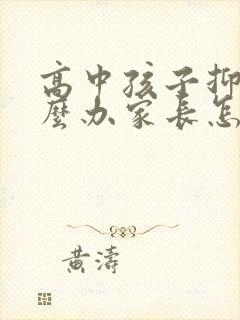 高中孩子抑
麼办家长怎
黄濤